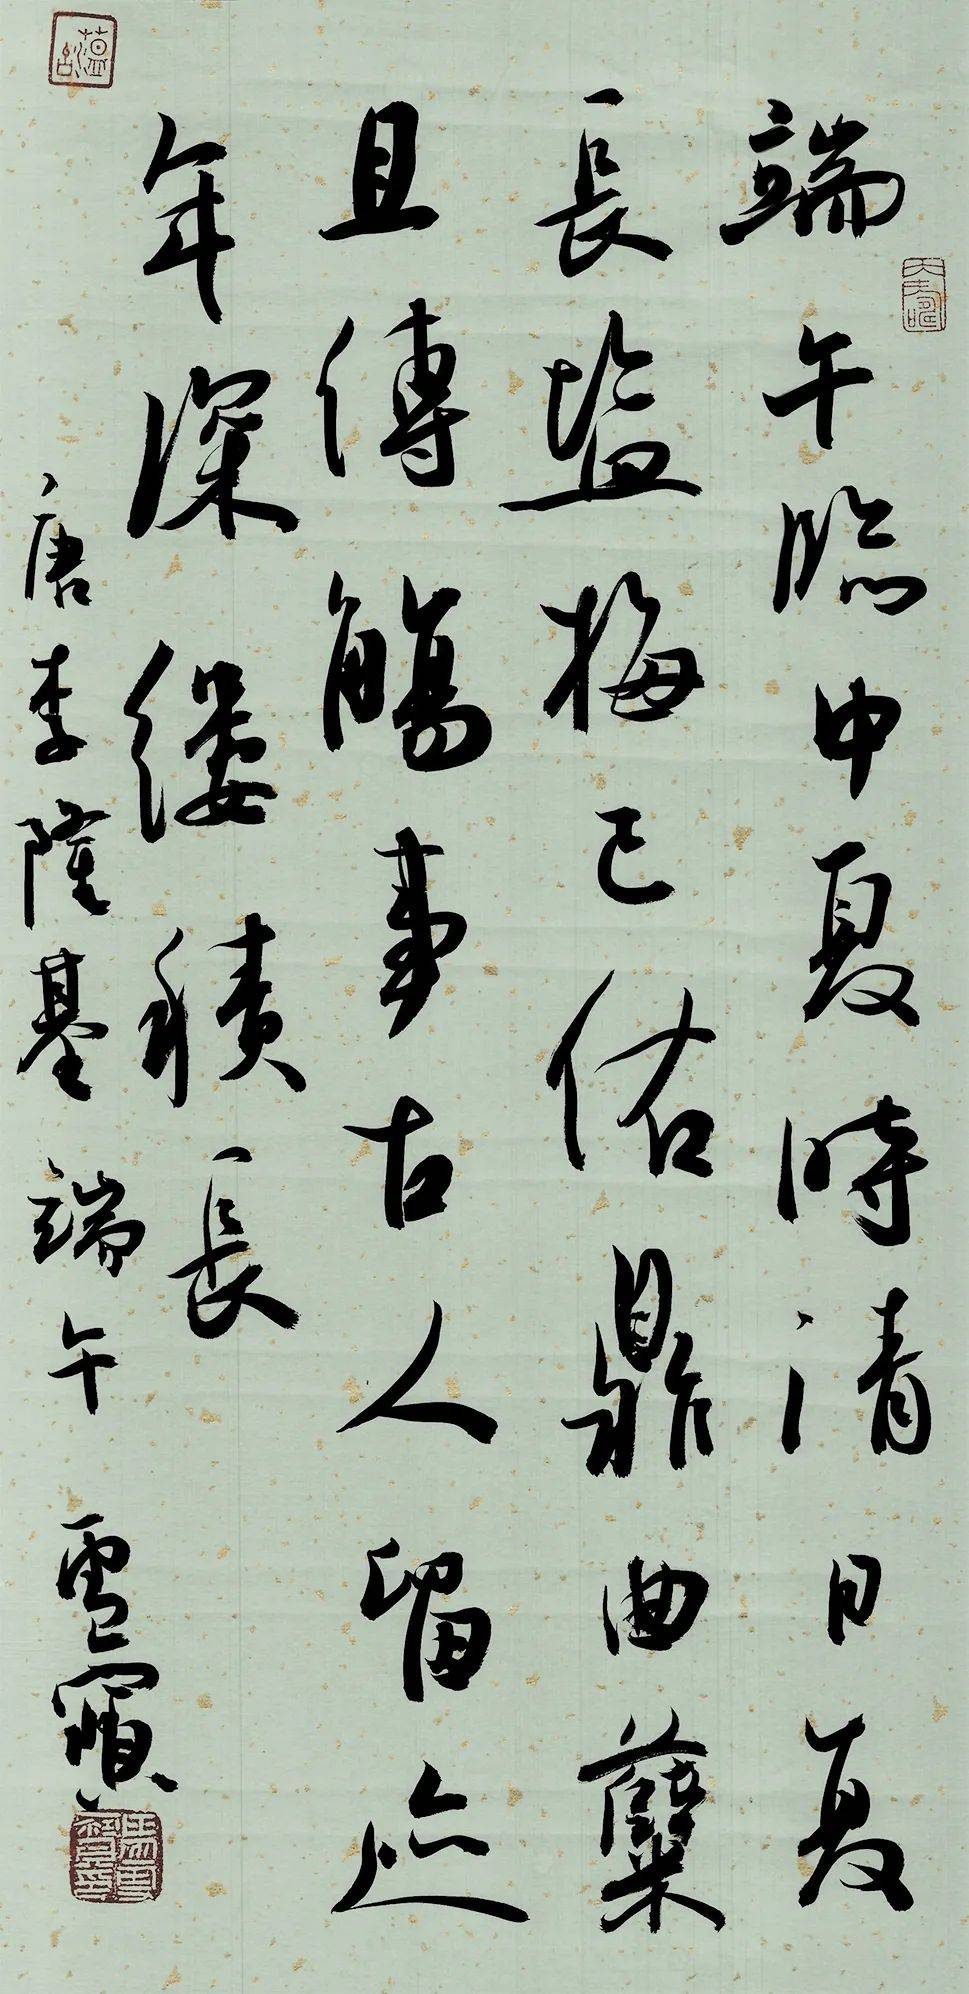 端午临中夏時清日复
長盐梅已佑鼎曲糵
且傳觴事古人留迹
年深縷積長
唐李隆基端午